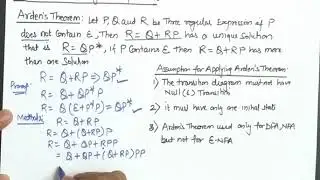 Arden's Theorem: Let P, Q and R be Three regular Expression if P
does not Contain E, Then R = Q + RP has a unique Solution
that is R = QP*, if P Contains E Then R = Q + RP has more
than one Solution
Proof:
R = Q + RP ⇒ QP*
R = Q + QP*P
R = Q(E + P*P) ⇒ QP*
Methods:
R = Q + RP
R = Q + (Q + RP)P
R = Q + QP + RPP
= Q + QP + (Q + RP)PP
Assumption for Applying Arden's Theorem:
1) The transition diagram must not have
Null (E) Transition
2) it must have only one initial state
3) Arden's Theorem used only for DFA, NFA
but not for E-NFA